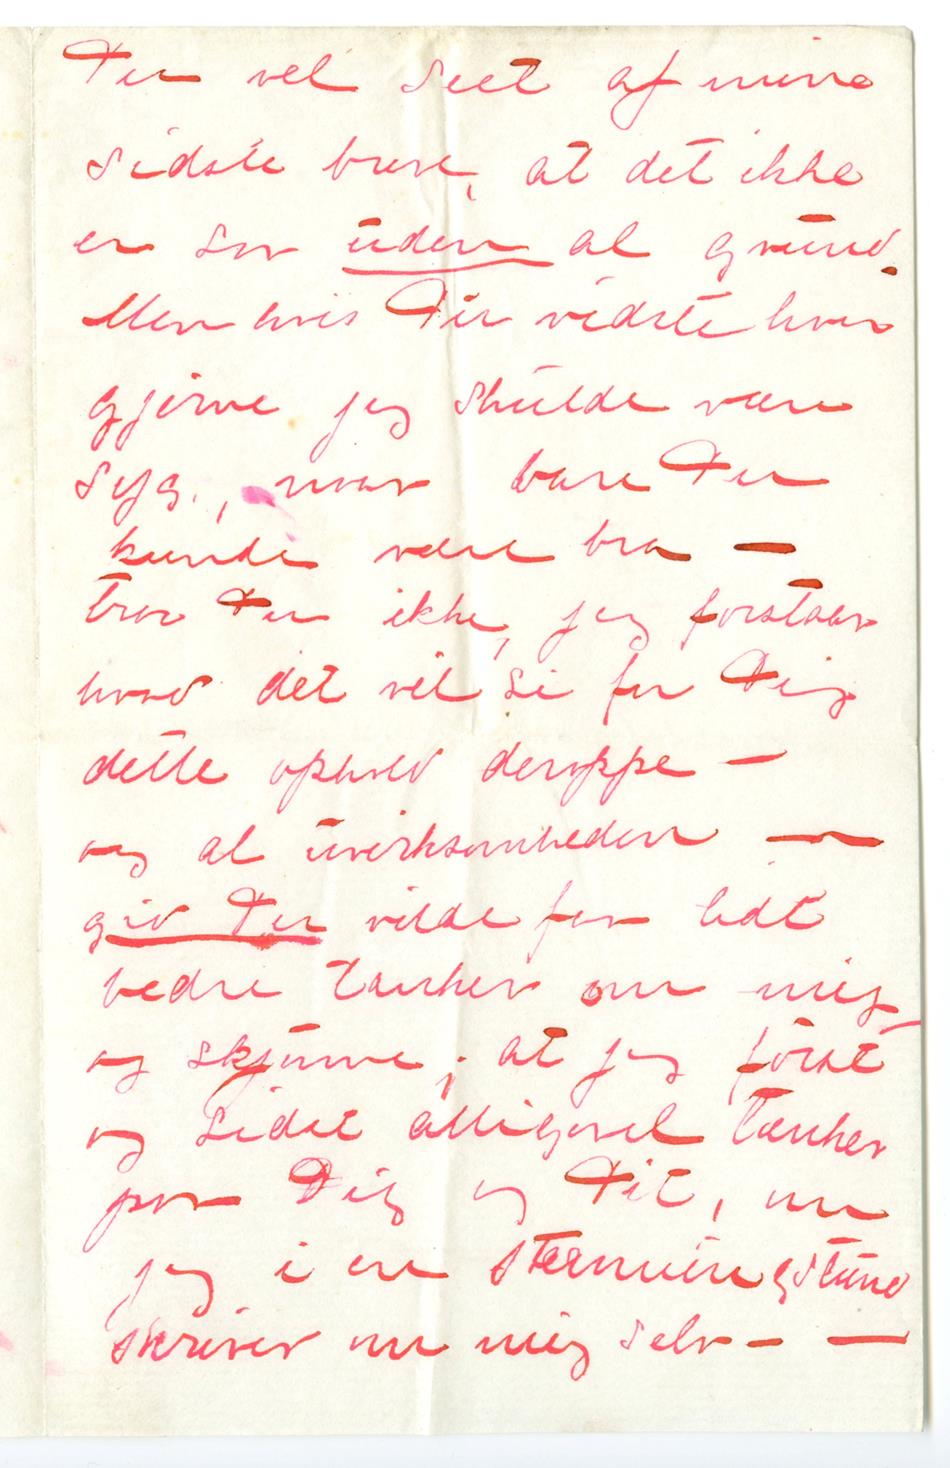 Du vel seet af mine
sidste breve, at det ikke
er saa uden al grund.
Men hvis Du vidste hvor
gjerne jeg skulde være
syg, naar bare Du
kunde være bra —
Tror Du ikke, jeg forstaar
hvad det vil si for Dig
dette ophold deroppe —
og al uvirksomheden —
giv Du vilde faa lidt
bedre tanker om mig
og skjønne, at jeg først
og sidst alligevel tænker
paa Dig og Dit, om
jeg i en stemningsstund
skriver om mig selv — —